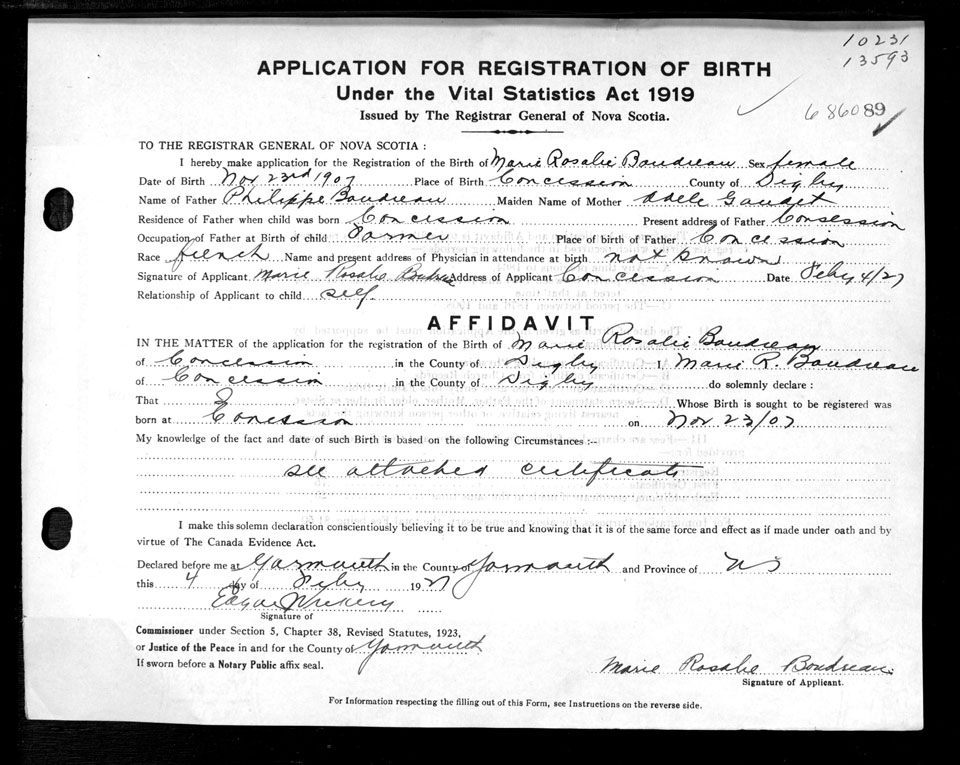 10231
13593
APPLICATION FOR REGISTRATION OF BIRTH
Under the Vital Statistics Act 1919
68608989
Issued by The Registrar General of Nova Scotia.
TO THE REGISTRAR GENERAL OF NOVA SCOTIA :
I hereby make application for the Registration of the Birth of Marie Rosalie Boudreau Sex female
Date of Birth Nov 23rd 1907 Place of Birth Concession County of Digby
Name of Father Philippe Boudreau Maiden Name of Mother Adele Gaudet
Residence of Father when child was born Concession Present address of Father Consession
Occupation of Father at Birth of child Farmer Place of birth of Father Concession
Race french Name and present address of Physician in attendance at birth not known
Signature of Applicant Marie Rosalie Boudreau Address of Applicant Concession Date Feby 4/27
Relationship of Applicant to child self
AFFIDAVIT
IN THE MATTER of the application for the registration of the Birth of Marie Rosalie Boudreau
of Concession in the County of Digby I Marie R. Boudreau
of Concession in the County of Digby do solemnly declare :
That I Whose Birth is sought to be registered was
born at Concession on Nov 23/07
My knowledge of the fact and date of such Birth is based on the following Circumstances :—
see attached certificate
I make this solemn declaration conscientiously believing it to be true and knowing that it is of the same force and effect as if made under oath and by
virtue of The Canada Evidence Act.
Declared before me at Yarmouth in the County of Yarmouth and Province of NS
this 4 day of Feby 1927
Edgar Vickery
Signature of
Commissioner under Section 5, Chapter 38, Revised Statutes, 1923,
or Justice of the Peace in and for the County of Yarmouth
If sworn before a Notary Public affix seal.
Marie Rosalie Boudreau
Signature of Applicant.
For Information respecting the filling out of this Form, see Instructions on the reverse side.